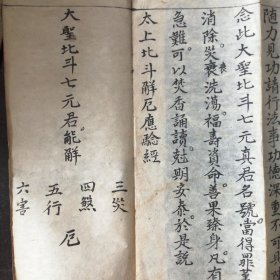 陆力充功請法事功德
念此大聖北斗七元真君名號當得罪業
消除災衰洗蕩福壽資命善果臻身凡有
急難可以焚香誦讀尅期安泰於是説
太上北斗解厄應驗經
大聖北斗七元君能解
三災
四煞
五行
六害
厄